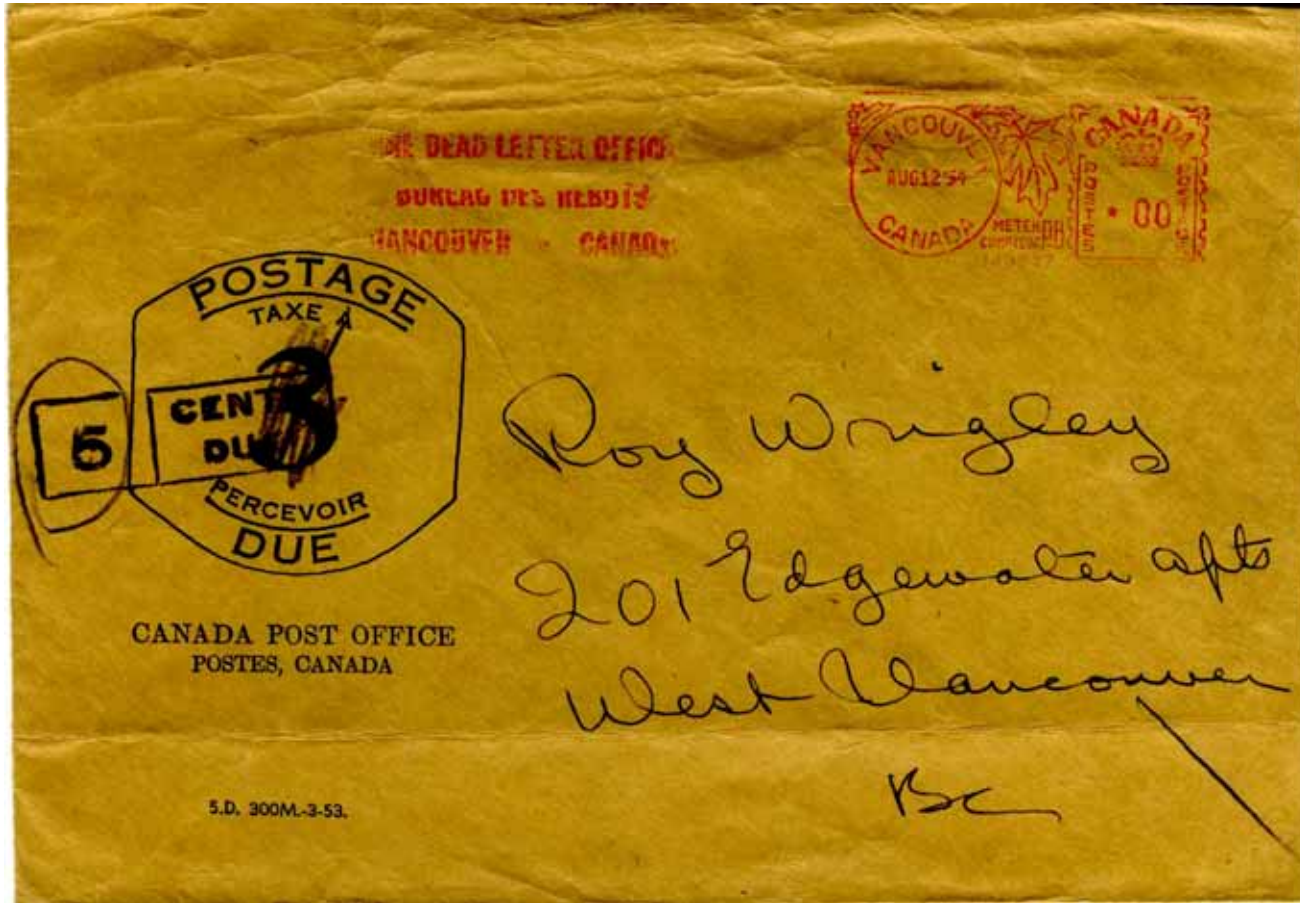 THE DEAD LETTER OFFICE
BUREAU DES REBUTS
VANCOUVER - CANADA
VANCOUVER
AUG 12 54
CANADA
METER
CANADA
POSTES
POSTAGE
00
POSTAGE
TAXE A
3
5
CENTS
DUE
PERCEVOIR
DUE
CANADA POST OFFICE
POSTES, CANADA
5.D. 300M.-3-53.
Roy Wrigley
201 Edgewater apts
West Vancouver
BC